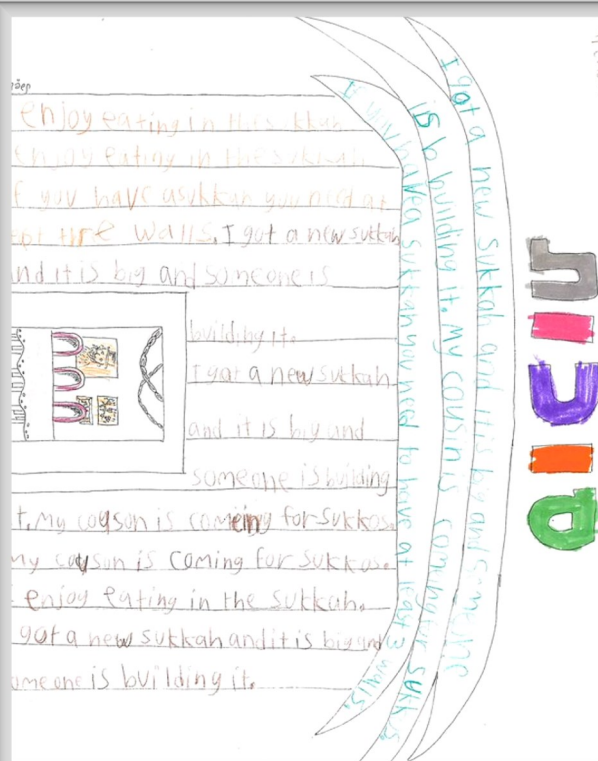 enjoy eating in the sukkah
enjoy eating in the sukkah
f you have a sukkah you need at
the walls. I got a new sukkah
and it is big and someone is
building it.
I got a new sukkah
and it is big and
someone is building
t. my couson is comeing for sukkos.
my couson is coming for sukkos.
enjoy eating in the sukkah.
got a new sukkah and it is big and
omeone is building it.
If you have a sukkah you need to have at least 3 walls.
is b building it. my cousin is coming for sukkos.
I got a new sukkah and it is big and someone
סוכות